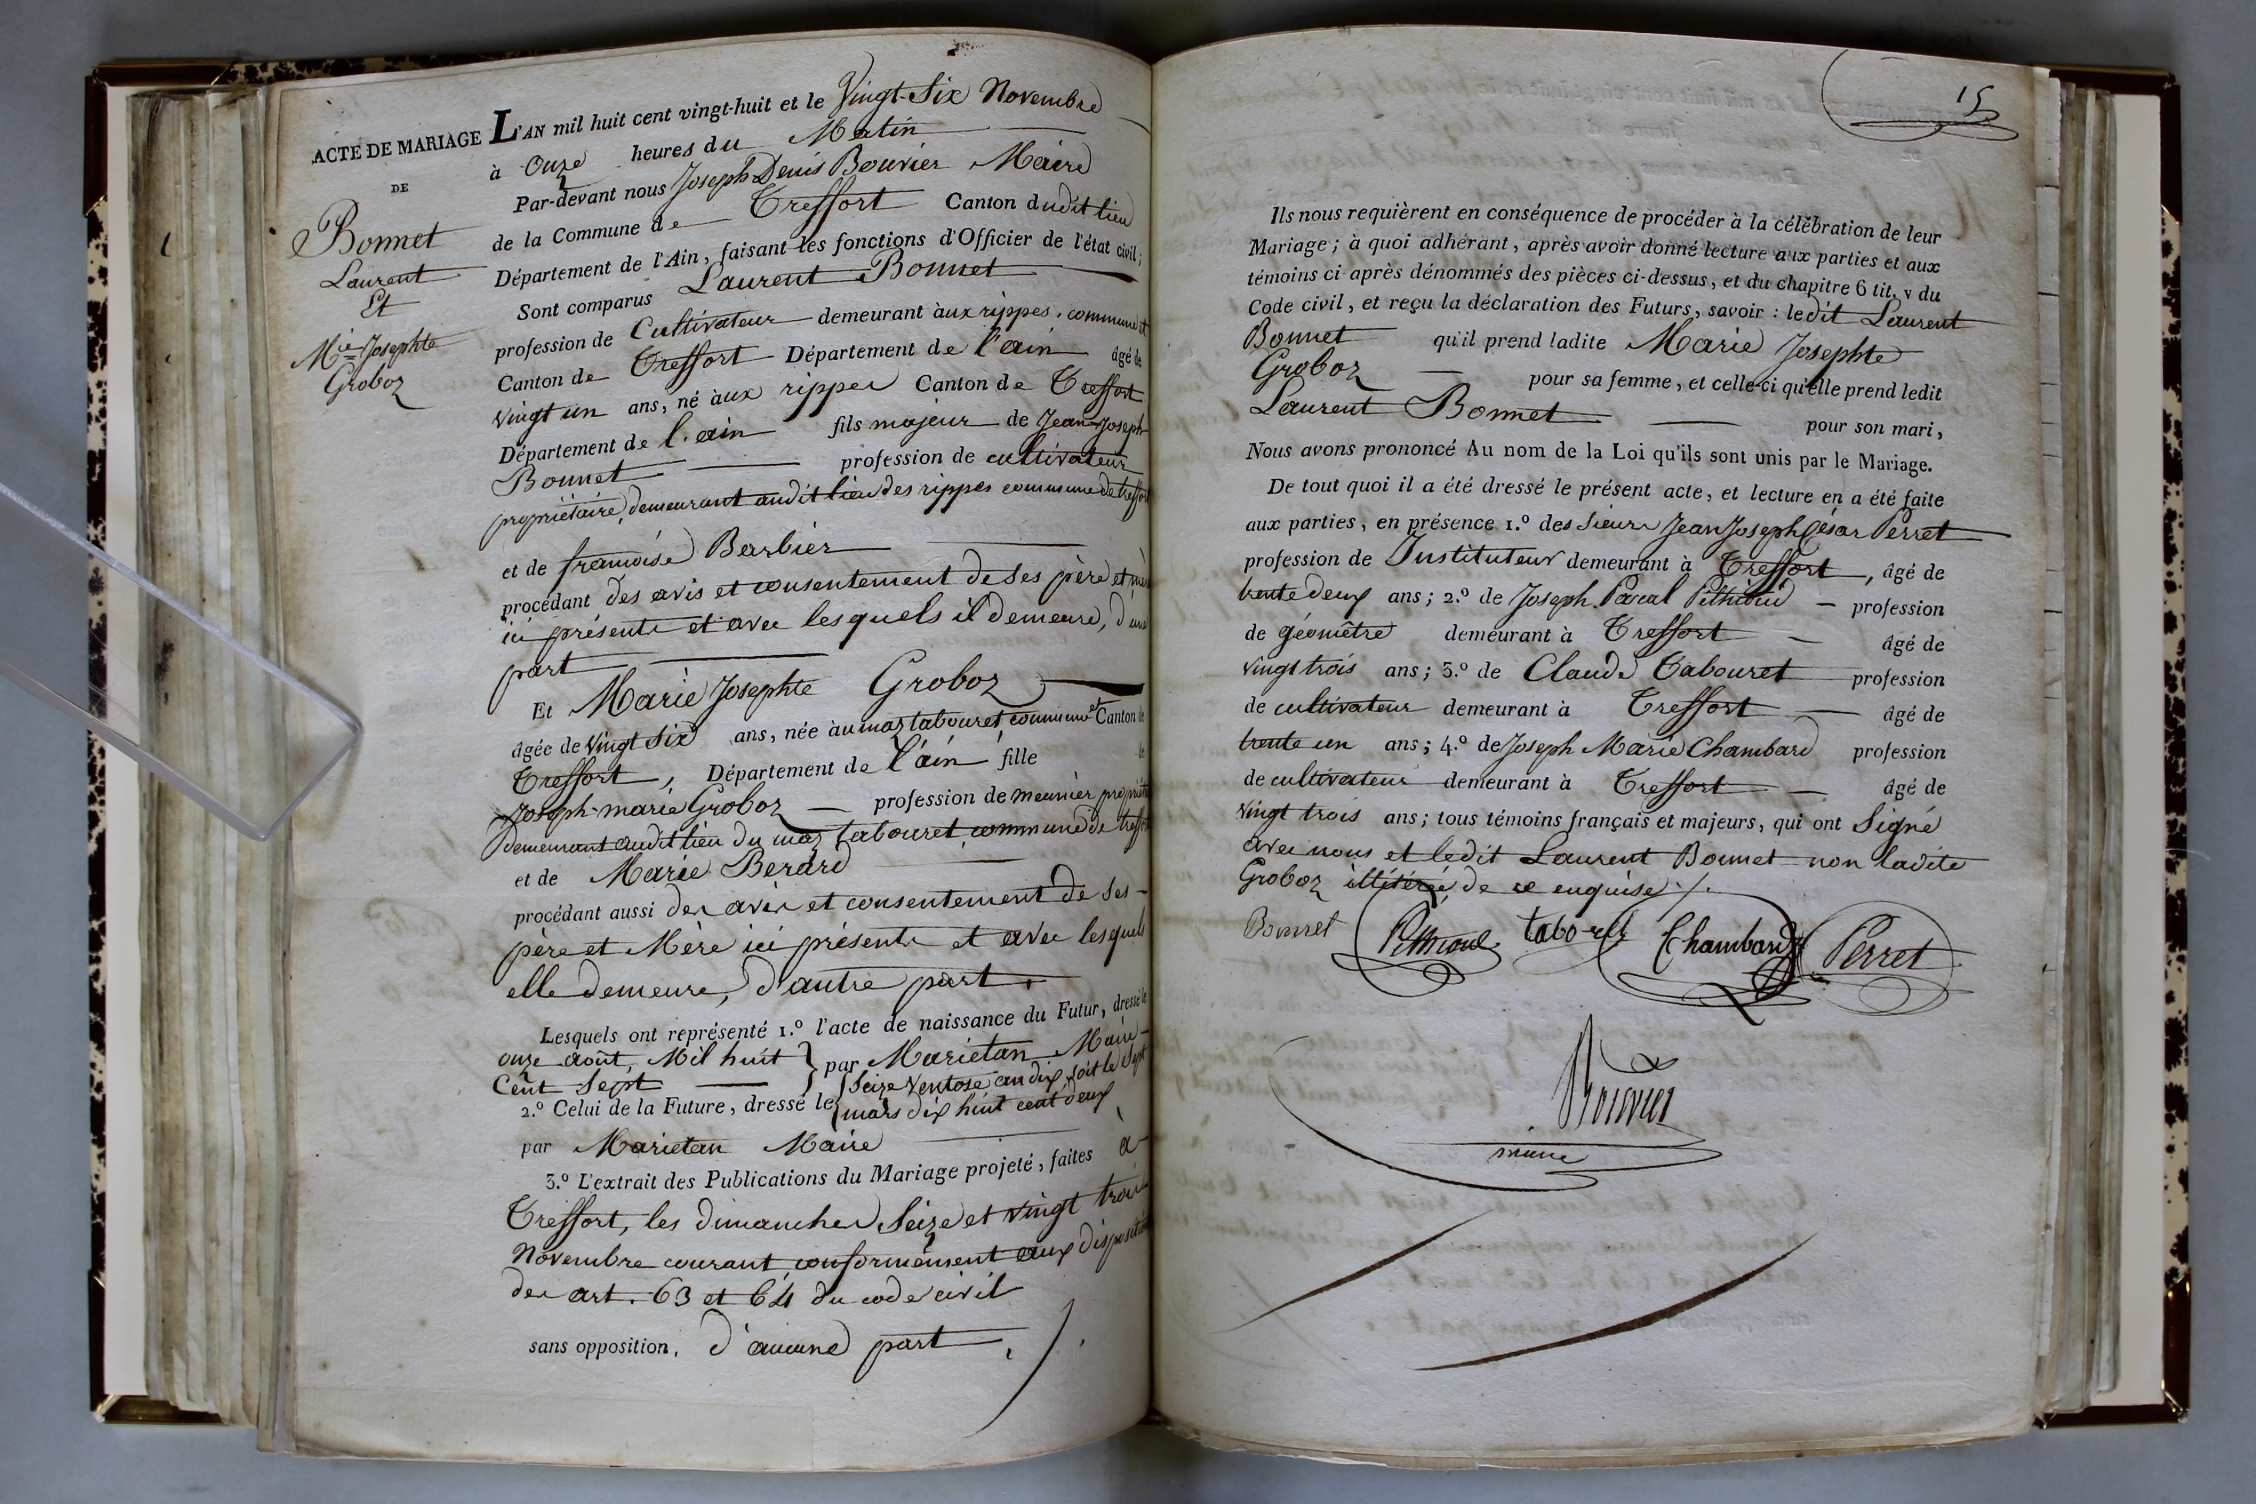 ACTE DE MARIAGE
DE
Bonnet
Laurent
Et
Mie Josephte
Groboz
L'AN mil huit cent vingt-huit et le Vingt-Six Novembre
à Onze heures du Matin
Par-devant nous Joseph Denis Bouvier Maire
de la Commune de Treffort Canton dudit lieu
Département de l'Ain, faisant les fonctions d'Officier de l'état civil;
Sont comparus Laurent Bonnet
profession de Cultivateur demeurant àux rippes, commune et
Canton de Treffort Département de l'ain âgé de
vingt un ans, né àux rippes Canton de Treffort
Département de l'ain fils majeur de Jean Joseph
Bonnet profession de cultivateur
propriétaire, demeurant audit lieu des rippes commune de treffort
et de francoise Barbier
procédant des avis et consentement de ses père et mère
ici présents et avec lesquels il demeure, d'une
part
Et Marie Josephte Groboz
âgée de vingt six ans, née àu maz tabouret commune et Canton de
Treffort, Département de l'ain fille de
Joseph-marie Groboz profession de meunier propriétaire
demeurant audit lieu du maz tabouret, commune de treffort
et de Marie Berard
procédant aussi des avis et consentement de ses
père et Mère ici présents et avec lesquels
elle demeure, d'autre part.
Lesquels ont représenté 1.º l'acte de naissance du Futur, dressé le
onze août, Mil huit } par Marietan Maire
Cent Sept
2.º Celui de la Future, dressé le { Seize Ventose an dix, soit le Sept
mars dix huit cent deux
par Marietan Maire
3.º L'extrait des Publications du Mariage projeté, faites à
Treffort, les dimanches Seize et vingt trois
Novembre courant, conformément aux dispositions
des art. 63 et 64 du code civil
sans opposition, d'aucune part.
15
Ils nous requièrent en conséquence de procéder à la célébration de leur
Mariage; à quoi adhérant, après avoir donné lecture aux parties et aux
témoins ci après dénommés des pièces ci-dessus, et du chapitre 6 tit. v du
Code civil, et reçu la déclaration des Futurs, savoir : ledit Laurent
Bonnet qu'il prend ladite Marie Josephte
Groboz pour sa femme, et celle-ci qu'elle prend ledit
Laurent Bonnet pour son mari,
Nous avons prononcé Au nom de la Loi qu'ils sont unis par le Mariage.
De tout quoi il a été dressé le présent acte, et lecture en a été faite
aux parties, en présence 1.º des Sieurs Jean Joseph César Perret
profession de Instituteur demeurant à Treffort, âgé de
trente deux ans; 2.º de Joseph Pascal profession
de géomêtre demeurant à Treffort âgé de
vingt trois ans; 3.º de Claude Tabouret profession
de cultivateur demeurant à Treffort âgé de
trente un ans; 4.º de Joseph Marie Chambard profession
de cultivateur demeurant à Treffort âgé de
vingt trois ans; tous témoins français et majeurs, qui ont Signé
avec nous et ledit Laurent Bonnet non ladite
Groboz illitérée de ce enquise ./.
Bonnet Chambard Perret
Bouvier
maire